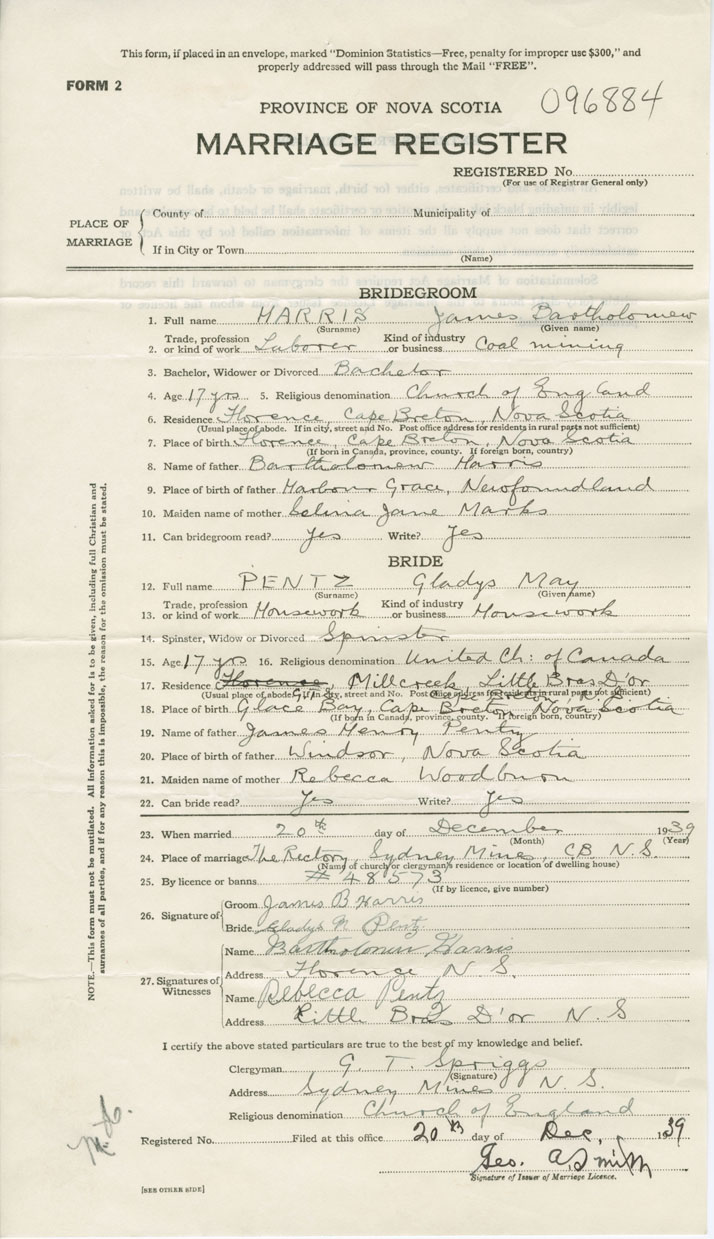 This form, if placed in an envelope, marked "Dominion Statistics—Free, penalty for improper use $300," and
properly addressed will pass through the Mail "FREE".
FORM 2
096884
PROVINCE OF NOVA SCOTIA
MARRIAGE REGISTER
REGISTERED No.
(For use of Registrar General only)
PLACE OF MARRIAGE
County of
Municipality of
If in City or Town
(Name)
BRIDEGROOM
1. Full name HARRIS James Bartholomew
(Surname) (Given name)
2. Trade, profession or kind of work Laborer Kind of industry or business Coal mining
3. Bachelor, Widower or Divorced Bachelor
4. Age 17 yrs 5. Religious denomination Church of England
6. Residence Florence, Cape Breton, Nova Scotia
(Usual place of abode. If in city, street and No. Post office address for residents in rural parts not sufficient)
7. Place of birth Florence, Cape Breton, Nova Scotia
(If born in Canada, province, county. If foreign born, country)
8. Name of father Bartholomew Harris
9. Place of birth of father Harbour Grace, Newfoundland
10. Maiden name of mother Selina Jane Marks
11. Can bridegroom read? Yes Write? Yes
BRIDE
12. Full name PENTZ Gladys May
(Surname) (Given name)
13. Trade, profession or kind of work Housework Kind of industry or business Housework
14. Spinster, Widow or Divorced Spinster
15. Age 17 yrs 16. Religious denomination United Ch: of Canada
17. Residence Florence, Millcreek, Little Bras D'or
(Usual place of abode. If in city, street and No. Post office address for residents in rural parts not sufficient)
18. Place of birth Glace Bay, Cape Breton, Nova Scotia
(If born in Canada, province, county. If foreign born, country)
19. Name of father James Henry Pentz
20. Place of birth of father Windsor, Nova Scotia
21. Maiden name of mother Rebecca Woodburn
22. Can bride read? Yes Write? Yes
23. When married 20th day of December 1939
(Month) (Year)
24. Place of marriage The Rectory, Sydney Mines, C.B. N.S.
(Name of church or clergyman's residence or location of dwelling house)
25. By licence or banns # 48573
(If by licence, give number)
26. Signature of
Groom James B Harris
Bride Gladys M Pentz
27. Signatures of Witnesses
Name Bartholomew Harris
Address Florence N. S.
Name Rebecca Pentz
Address Little Bras D'or N. S
I certify the above stated particulars are true to the best of my knowledge and belief.
Clergyman G. T. Spriggs
(Signature)
Address Sydney Mines N. S.
Religious denomination Church of England
Registered No. Filed at this office 20th day of Dec, 1939
Geo. A. Smith
Signature of Issuer of Marriage Licence.
[SEE OTHER SIDE]
NOTE.—This form must not be mutilated. All information asked for is to be given, including full Christian and
surnames of all parties, and if for any reason this is impossible, the reason for the omission must be stated.